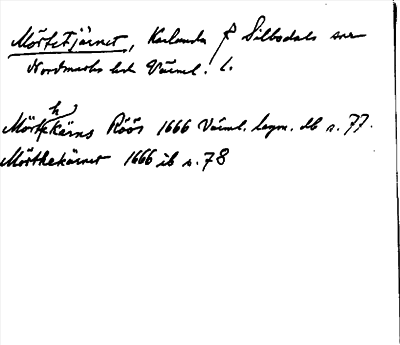 Mörtetjärnet, Karlanda f Silbodals sn
Nordmarks hd Värml. l.
Mörthekärns Röös 1666 Värml. lagm. db s. 77.
Mörthekärnet 1666 ib s. 78